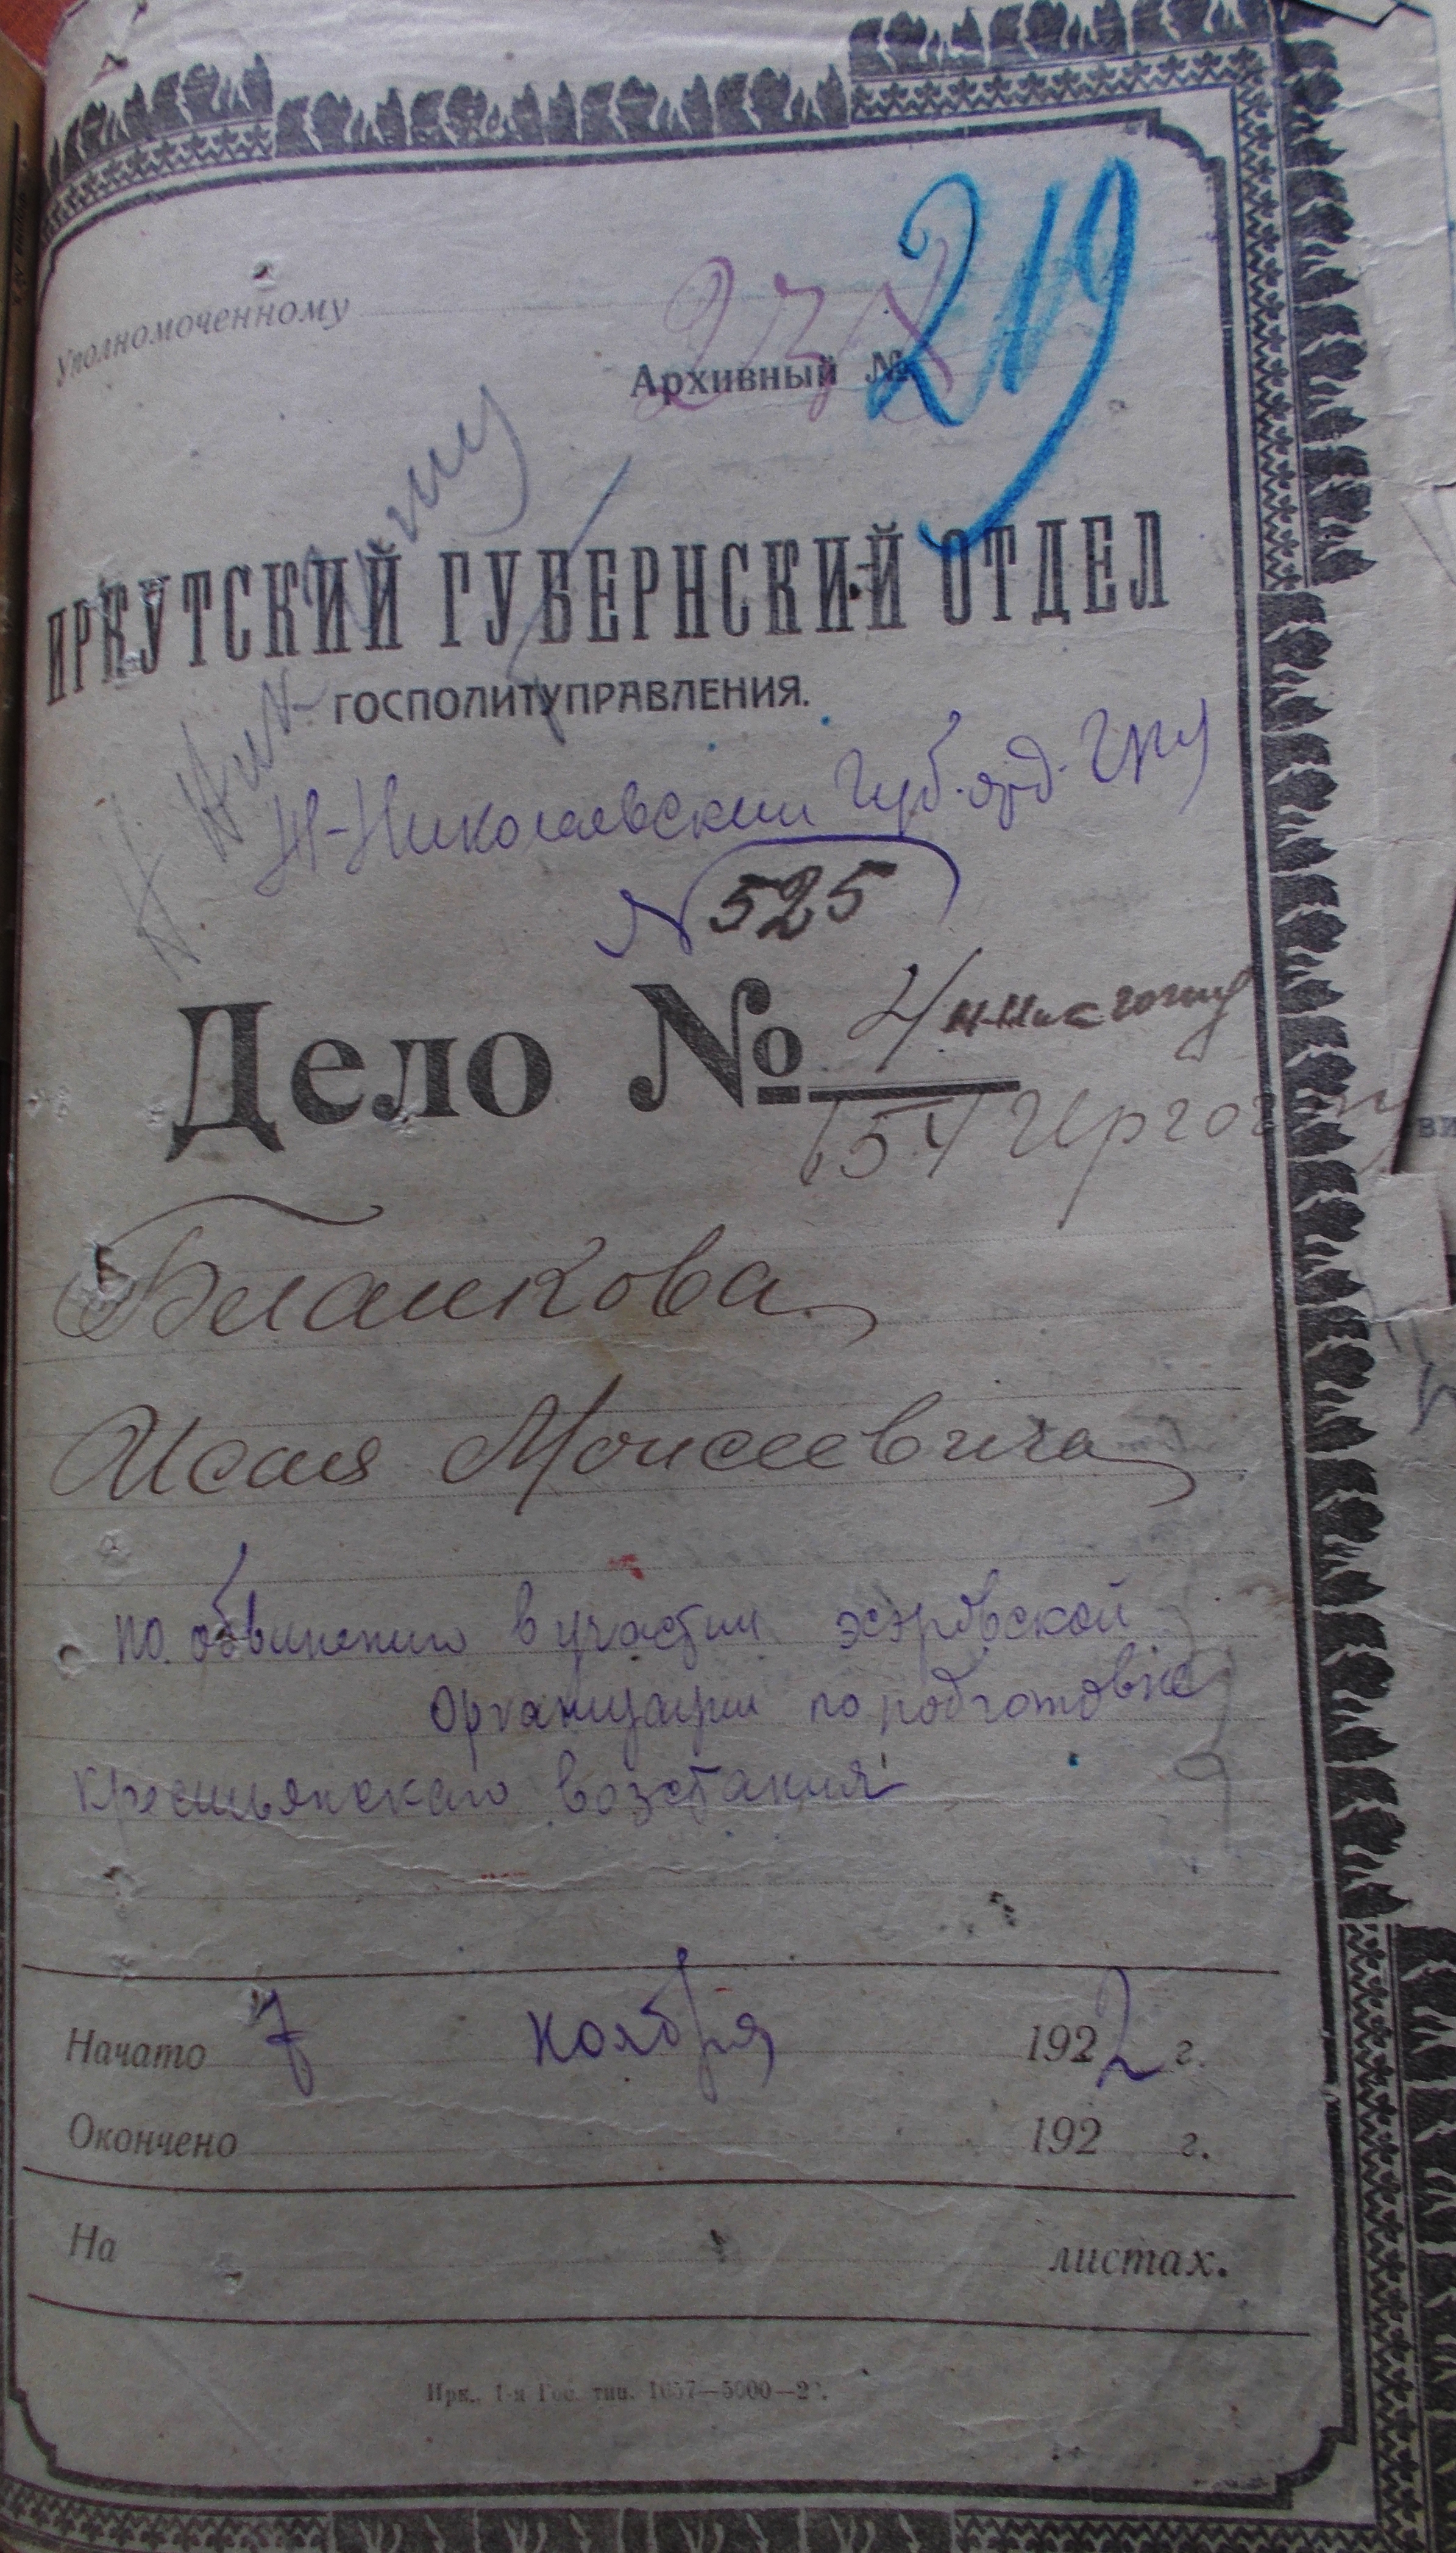 Уполномоченному
Архивный №
219
ИРКУТСКИЙ ГУБЕРНСКИЙ ОТДЕЛ
ГОСПОЛИТУПРАВЛЕНИЯ.
Н-Николаевский Губ. отд. ГПУ
N 525
Дело № 4
Бланкова
Исая Моисеевича
по обвинению в участии эсэровской
организации по подготовке
крестьянскаго возстания
Начато 7 ноября 1922 г.
Окончено 192 г.
На листах.
Ирк., 1-я Гос. тип.